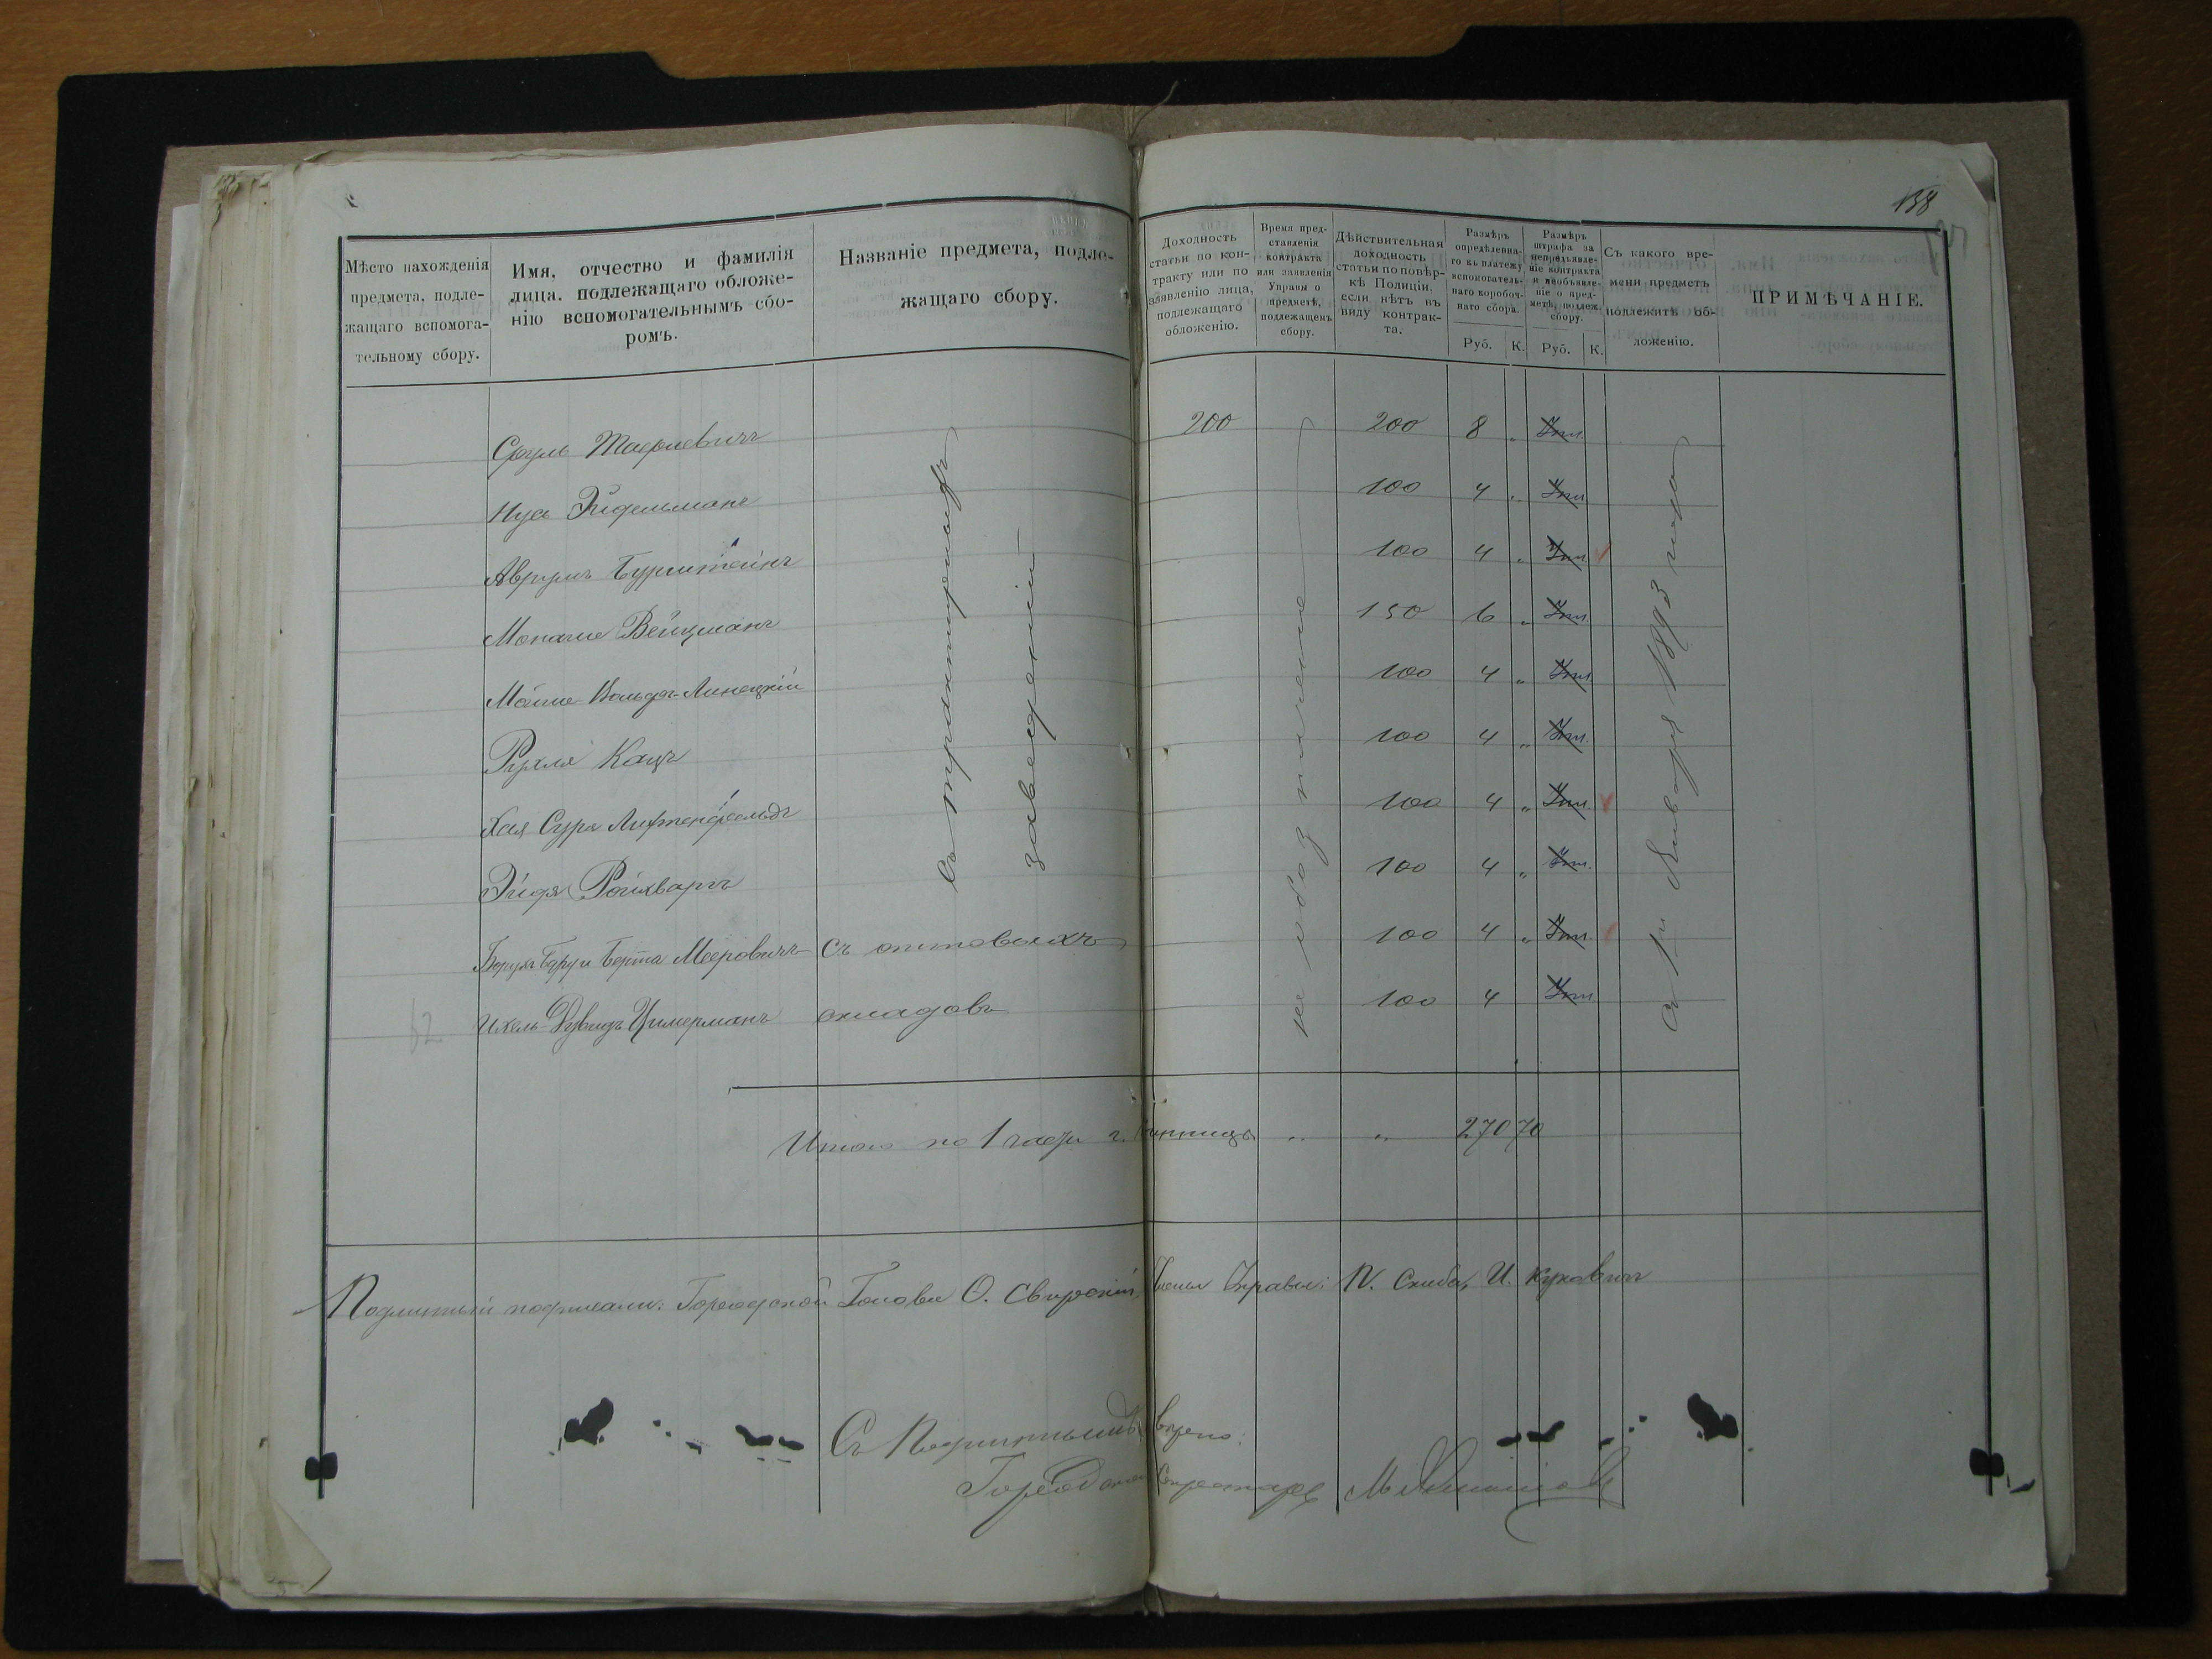 138
Мѣсто нахожденія
предмета, подле-
жащаго вспомога-
тельному сбору.
Имя, отчество и фамилія
лица, подлежащаго обложе-
нію вспомогательнымъ сбо-
ромъ.
Названіе предмета, подле-
жащаго сбору.
Доходность
статьи по кон-
тракту или по
заявленію лица,
подлежащаго
обложенію.
Время пред-
ставленія
контракта
или заявленія
Управы о
предметѣ,
подлежащемъ
сбору.
Дѣйствительная
доходность
статьи по повѣр-
кѣ Полиціи,
если нѣтъ въ
виду контрак-
та.
Размѣръ
опредѣленна-
го къ платежу
вспомогатель-
наго коробоч-
наго сбора.
Руб. К.
Размѣръ
штрафа за
непредъявле-
ніе контракта
и необъявле-
ніе о пред-
метѣ, подлеж.
сбору.
Руб. К.
Съ какого вре-
мени предметъ
подлежитъ об-
ложенію.
ПРИМѢЧАНІЕ.
Сруль 200 200 8 "
Нусь Эйдельманъ 100 4 "
Аврумъ Бурштейнъ 100 4 "
Монаше Вейцманъ 150 6 "
Мойше Вольфъ Линецкій 100 4 "
Рухля Кацъ 100 4 "
Хая Сура Лихтенфельдъ 100 4 "
Эйдя Ройхваргъ 100 4 "
Берта Мееровичъ Съ оптовыхъ 100 4 "
62 Ихель-Дувидъ Цимерманъ складовъ 100 4
Съ трактирныхъ
заведеній
не обозначено
Съ 1го Января 1893 года
Итого по 1 части г. Винницы " " 270 70
Подлинный подписали: Городской Голова О. Свирскій, Члены Управы: Скиба, И. Куковичъ
Съ Подлиннымъ вѣрно:
Городской Секретарь